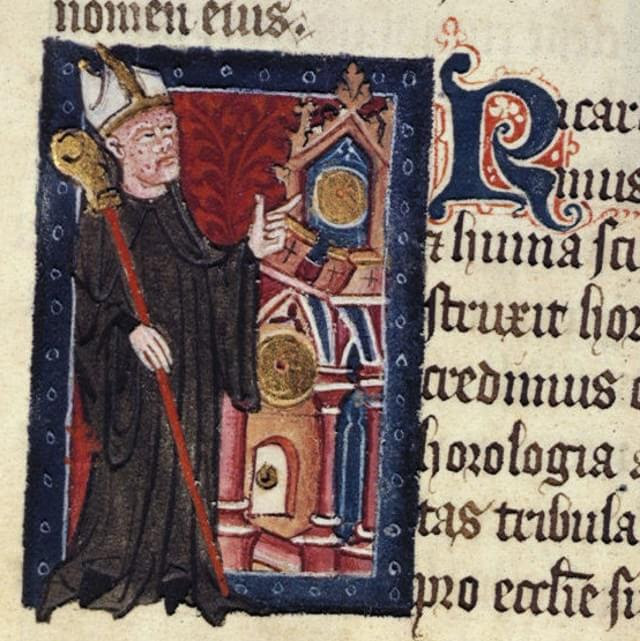 nomen eius.
Ricar
mus
et huma sci
struxit hor
credimus
horologia a
tas tribula
pro eccl̄ie si